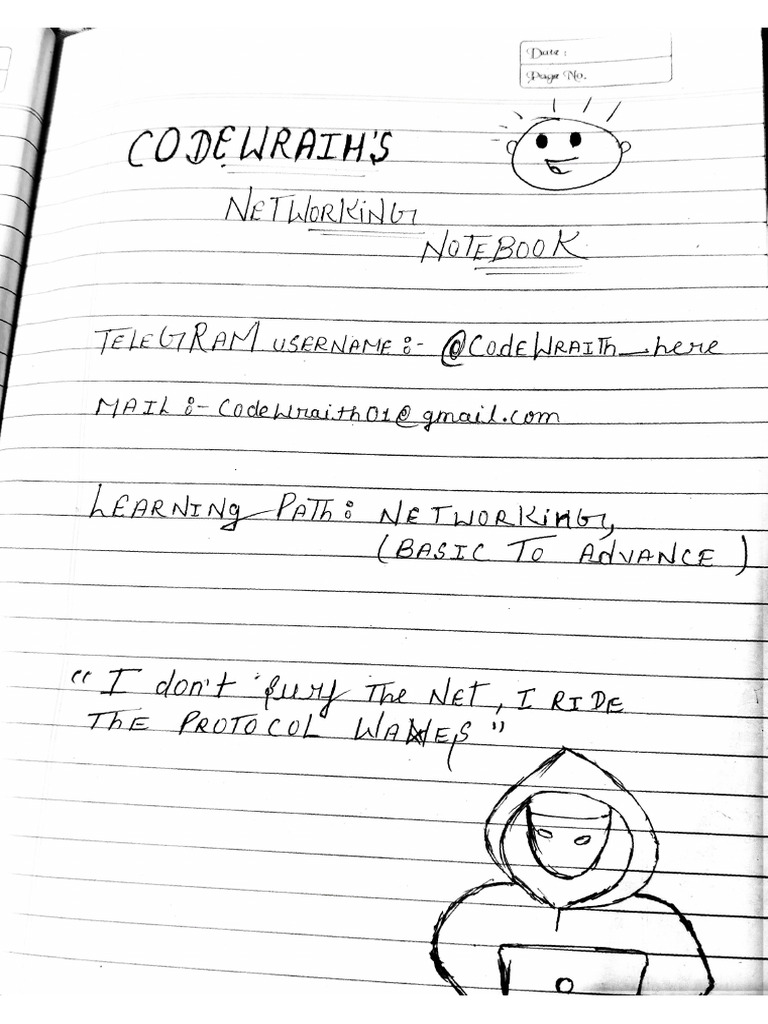 Date :
Page No.
CODEWRAITH'S
NETWORKING
NOTEBOOK
TELEGRAM USERNAME :- @CODEWRAITh_here
MAIL :- Codewraith01@gmail.com
LEARNING PATh : NETWORKING,
(BASIC TO AdVANCE )
"I don't The NET, I RIDE
ThE PROTOCOL WAVES"